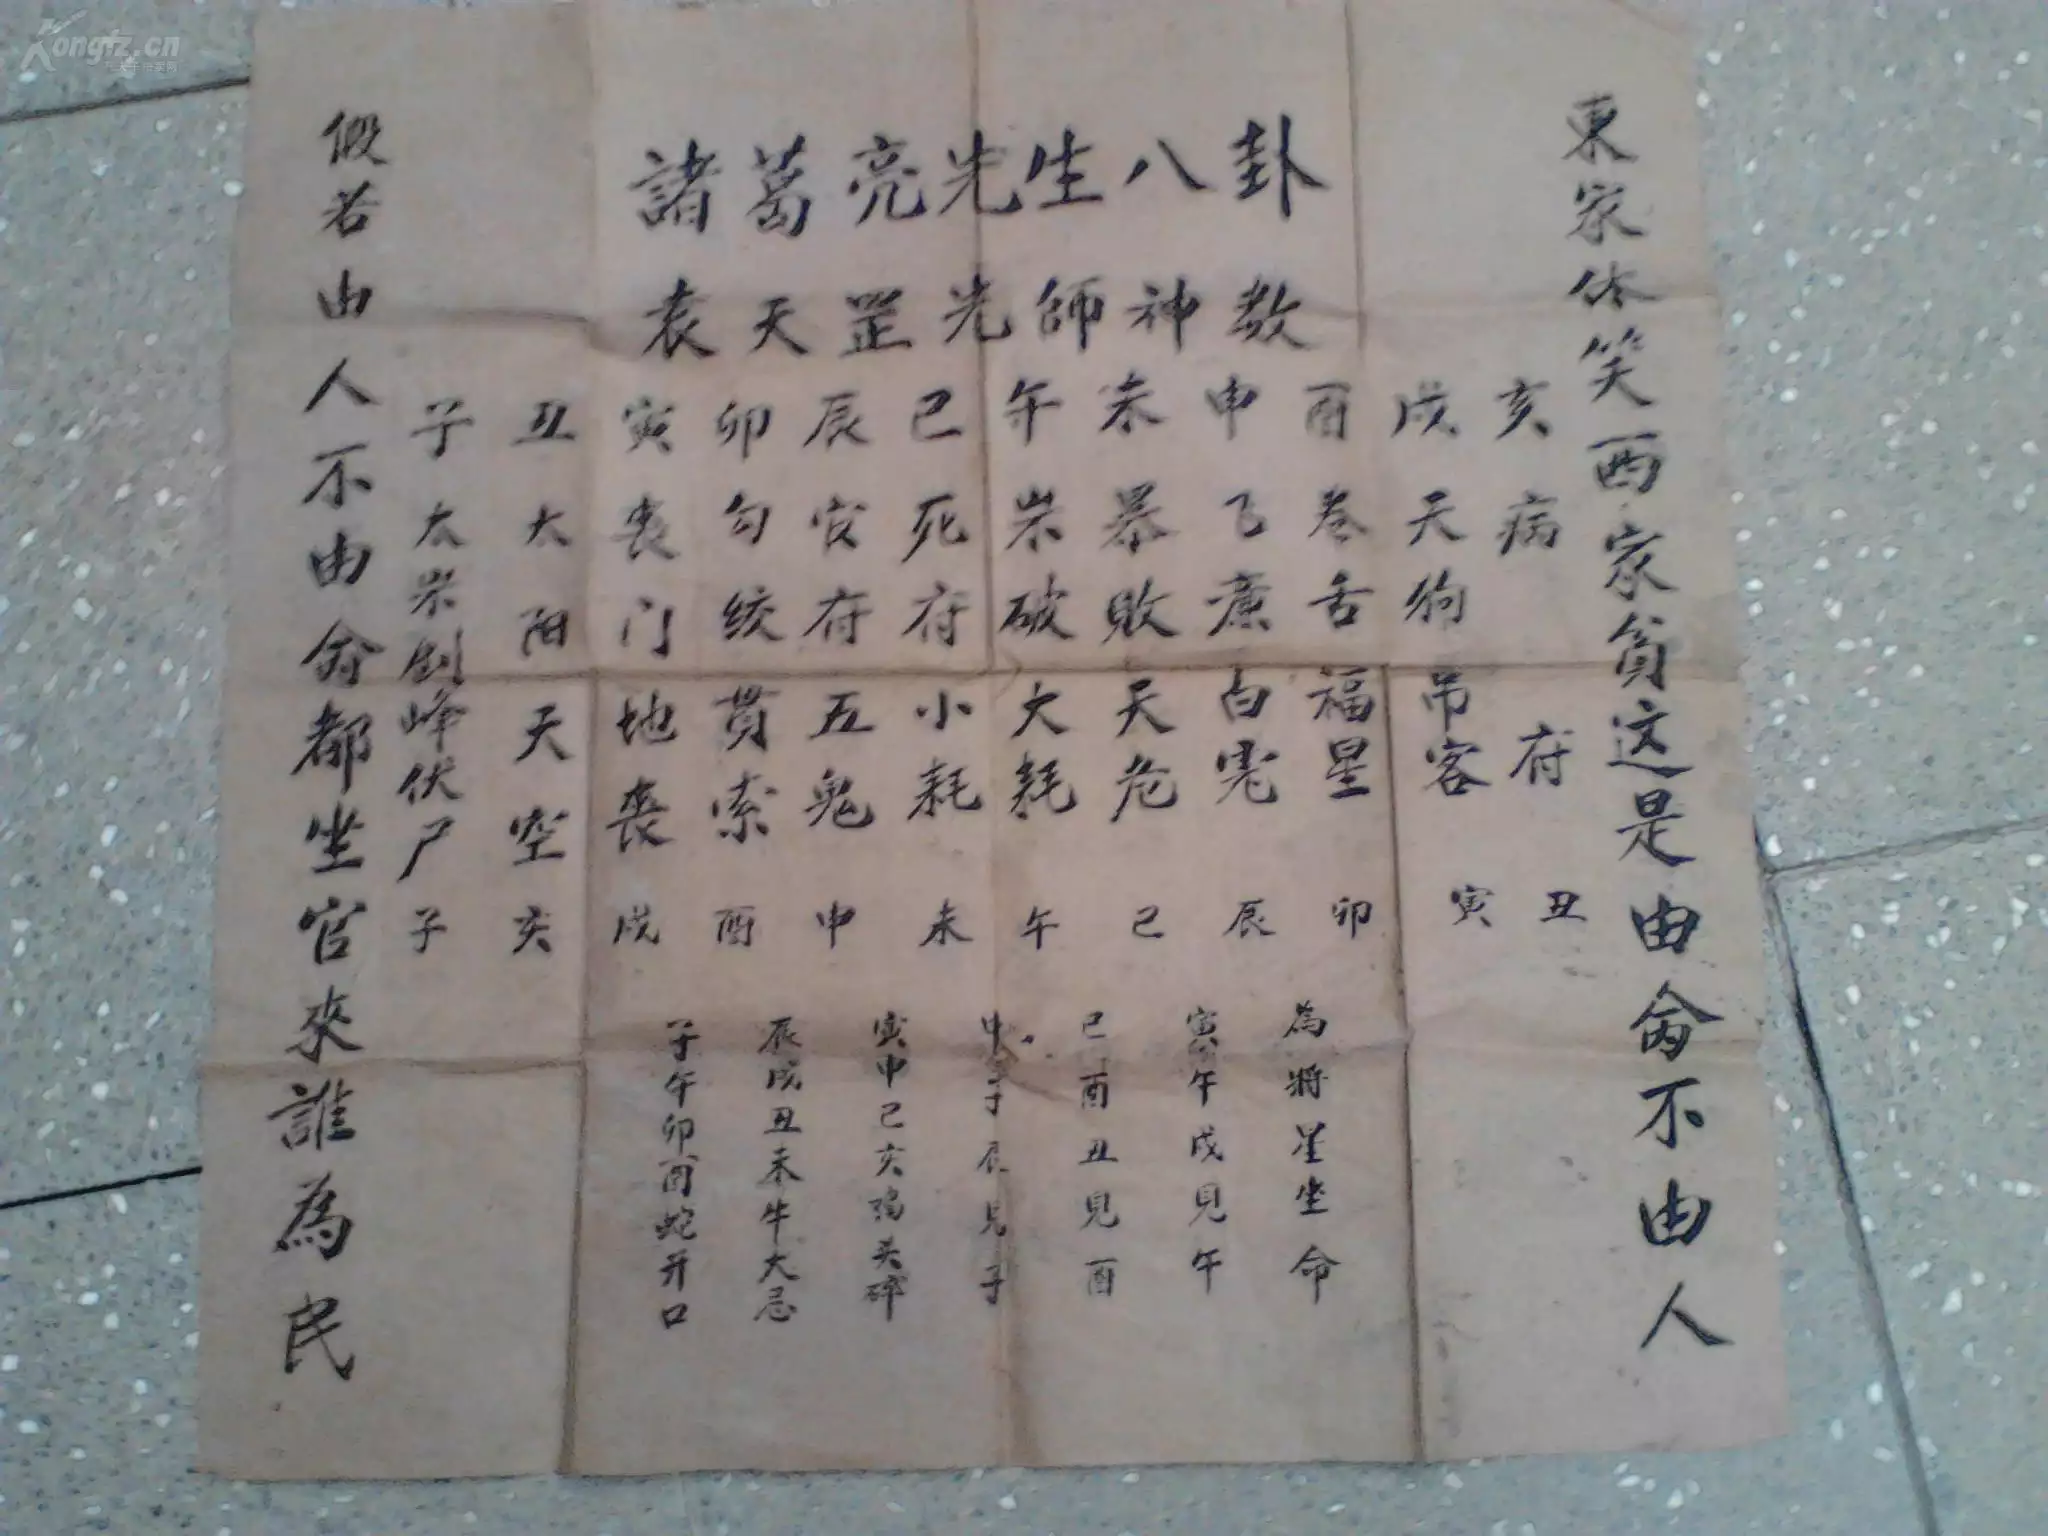 Kongfz.cn
諸葛亮先生八卦
袁天罡先師神数
東家休笑西家貧这是由命不由人
假若由人不由命都坐官來誰為民
子太岁剑峰伏尸子
丑太阳天空亥
寅丧门地丧戌
卯勾绞贯索酉
辰官府五鬼申
巳死府小耗未
午岁破大耗午
未暴敗天危巳
申飞廉白虎辰
酉卷舌福星卯
戌天狗吊客寅
亥病府丑
子午卯酉蛇开口
辰戌丑未牛大忌
寅申巳亥鸡头碎
申子辰見子
巳酉丑見酉
寅午戌見午
為將星坐命